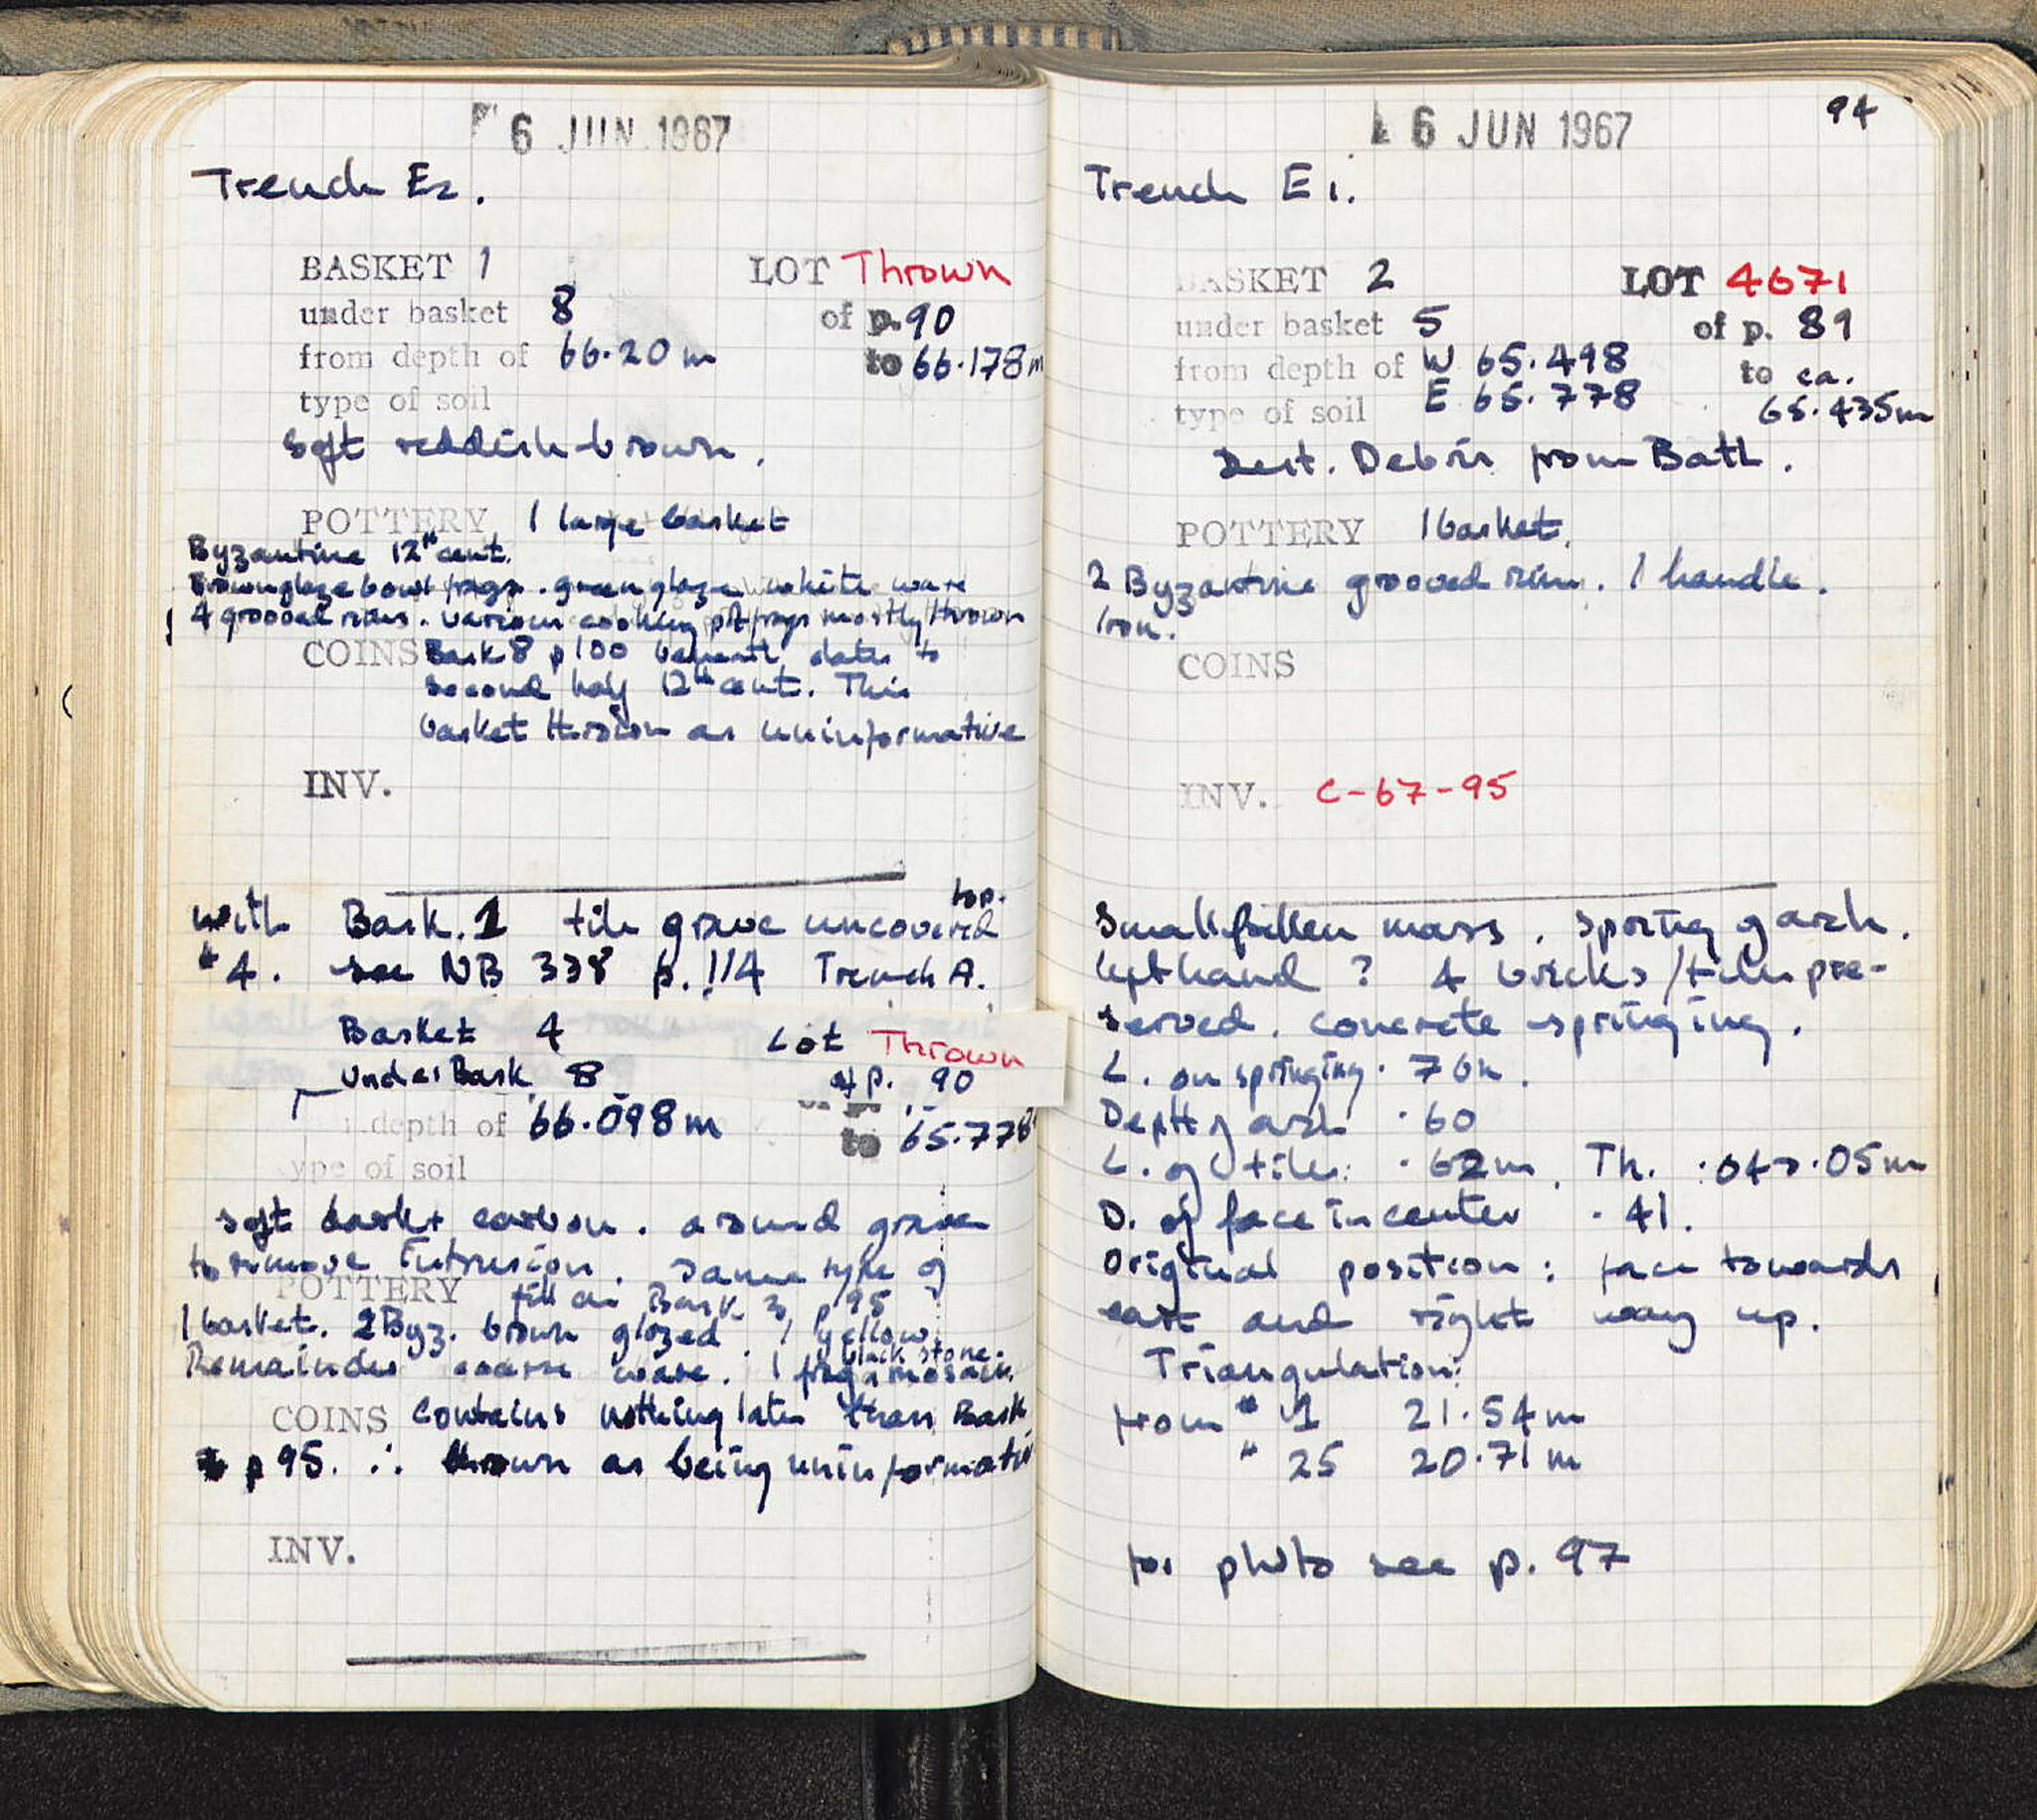 6 JUN 1967
Trench E2.
BASKET 1 LOT Thrown
under basket 8 of p. 90
from depth of 66.20 m to 66.178m
type of soil
soft reddish-brown.
POTTERY 1 large basket
Byzantine 12th cent.
Brown glaze bowl frags. green glaze white ware
4 grooved rims. various cooking pot frags mostly thrown
COINS Bask 8 p 100 beneath dates to
second half 12th cent. This
basket thrown as uninformative
INV.
with Bask. 1 tile grave uncovered top.
# 4. see NB 338 p. 114 Trench A.
Basket 4 Lot Thrown
Under Bask 8 of p. 90
depth of 66.098m to 65.778
type of soil
soft dark + carbon. around grave
to remove intrusion. same type of
POTTERY fill as Bask 3, p 95
1 basket. 2 Byz. brown glazed. 1 yellow.
Remainder coarse ware. 1 frag mosaic black stone.
COINS contains nothing later than Bask
p 95. ∴ thrown as being uninformative
INV.
6 JUN 1967 94
Trench E1.
BASKET 2 LOT 4671
under basket 5 of p. 89
from depth of W 65.498 to ca.
type of soil E 65.778 65.435m
Dest. Debris from Bath.
POTTERY 1 basket.
2 Byzantine grooved rims. 1 handle.
Iron.
COINS
INV. C-67-95
Small fallen mass. spring of arch.
left hand? 4 bricks/tiles pre-
served. concrete springing.
L. on springing. 76m.
Depth of arch .60
L. of tiles: .62m, Th. .04>.05m
D. of face in center .41.
Original position: face towards
east and right way up.
Triangulation:
from # 1 21.54m
" 25 20.71m
for photo see p. 97